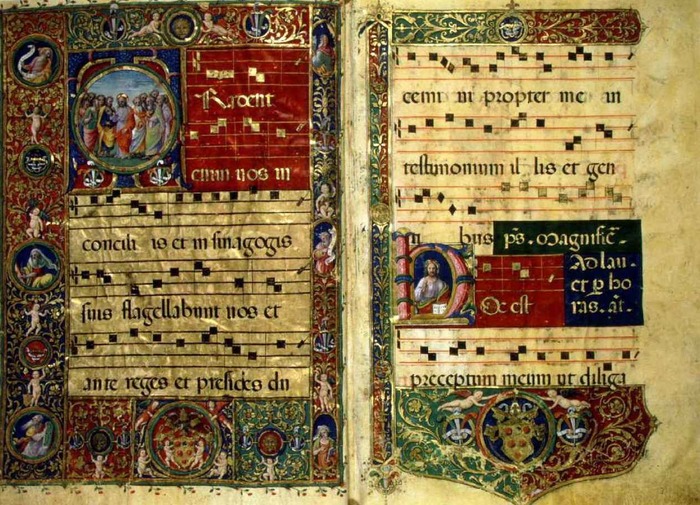 Tradent
enim uos in
concili is et in sinagogis
suis flagellabunt uos et
ante reges et presides du
cemi ni propter me in
testimonium il lis et gen
ti bus ps. Magnific.
Ad lau
et p ho
Hoc est ras. at.
preceptum meum ut diliga